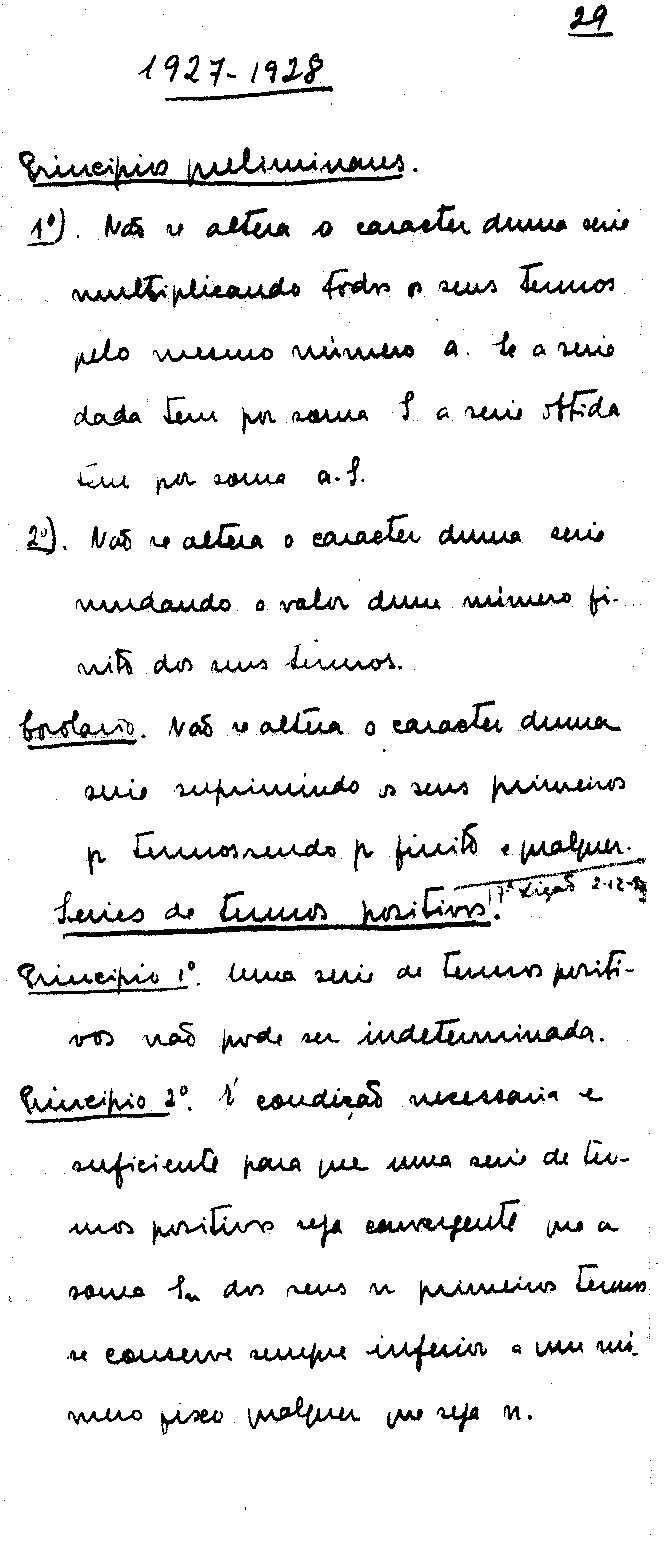 29
1927-1928
Principios preliminares.
1º). Não se altera o caracter duma serie
multiplicando todos os seus termos
pelo mesmo número a. Se a serie
dada tem por soma S a serie obtida
tem por soma a.S.
2º). Não se altera o caracter duma serie
mudando o valor dum número fi-
nito dos seus termos.
Corolario. Não se altera o caracter duma
serie suprimindo os seus primeiros
p termos sendo p finito e qualquer.
17ª Lição 2-12-
Series de termos positivos.
Principio 1º. Uma serie de termos positi-
vos não pode ser indeterminada.
Principio 2º. É condição necessaria e
suficiente para que uma serie de ter-
mos positivos seja convergente que a
soma Sn dos seus n primeiros termos
se conserve sempre inferior a um nú-
mero fixo qualquer que seja n.